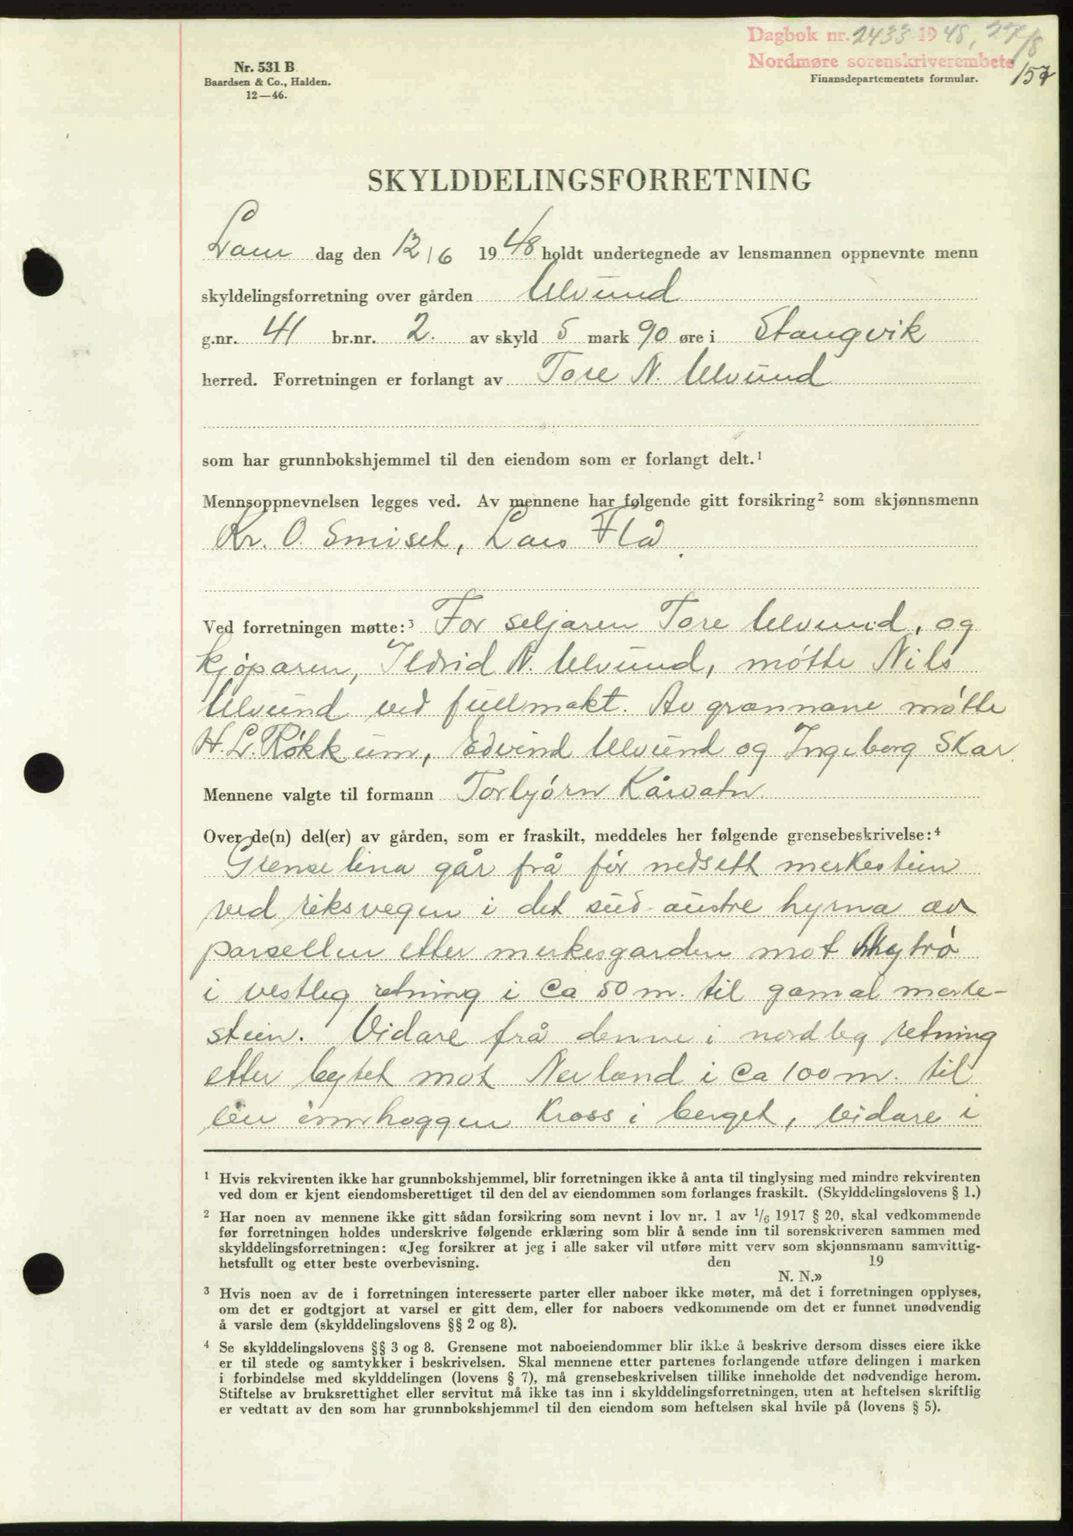 Dagbok nr. 2433 1948, 27/8
Nordmøre sorenskriverembete
157
Nr. 531 B
Baardsen & Co., Halden.
12—46.
Finansdepartementets formular.
SKYLDDELINGSFORRETNING
Laur dag den 12/6 1948 holdt undertegnede av lensmannen oppnevnte menn
skyldelingsforretning over gården Ulvund
g.nr. 41 br.nr. 2. av skyld 5 mark 90 øre i Stangvik
herred. Forretningen er forlangt av Tore N. Ulvund
som har grunnbokshjemmel til den eiendom som er forlangt delt.¹
Mennsoppnevnelsen legges ved. Av mennene har følgende gitt forsikring² som skjønnsmenn
Kr. O. Smiset, Lars Flå.
Ved forretningen møtte:³ For seljaren Tore Ulvund, og
kjøparen, Ildrid N. Ulvund, møtte Nils
Ulvund ved fullmakt. Av grannane møtte
H. L. Røkkum, Edvind Ulvund og Ingeborg Skar.
Mennene valgte til formann Torbjørn Kårvatn.
Over de(n) del(er) av gården, som er fraskilt, meddeles her følgende grensebeskrivelse:⁴
Grenselina går frå før nedsett merkestein
ved riksvegen i det sud-austre hyrna av
parsellen etter merkesgarden mot
i vestleg retning i ca 50 m. til gamal merke-
stein. Vidare frå denne i nordleg retning
etter bytet mot Nerland i ca 100 m. til
ein innhoggen kross i berget, vidare i
¹ Hvis rekvirenten ikke har grunnbokshjemmel, blir forretningen ikke å anta til tinglysing med mindre rekvirenten
ved dom er kjent eiendomsberettiget til den del av eiendommen som forlanges fraskilt. (Skylddelingslovens § 1.)
² Har noen av mennene ikke gitt sådan forsikring som nevnt i lov nr. 1 av ¹/₆ 1917 § 20, skal vedkommende
før forretningen holdes underskrive følgende erklæring som blir å sende inn til sorenskriveren sammen med
skylddelingsforretningen: «Jeg forsikrer at jeg i alle saker vil utføre mitt verv som skjønnsmann samvittig-
hetsfullt og etter beste overbevisning. den 19
N. N.»
³ Hvis noen av de i forretningen interesserte parter eller naboer ikke møter, må det i forretningen opplyses,
om det er godtgjort at varsel er gitt dem, eller for naboers vedkommende om det er funnet unødvendig
å varsle dem (skylddelingslovens §§ 2 og 8).
⁴ Se skylddelingslovens §§ 3 og 8. Grensene mot naboeiendommer blir ikke å beskrive dersom disses eiere ikke
er til stede og samtykker i beskrivelsen. Skal mennene etter partenes forlangende utføre delingen i marken
i forbindelse med skylddelingen (lovens § 7), må grensebeskrivelsen tillike inneholde det nødvendige herom.
Stiftelse av bruksrettighet eller servitut må ikke tas inn i skylddelingsforretningen, uten at heftelsen skriftlig
er vedtatt av den som har grunnbokshjemmel til den eiendom som heftelsen skal hvile på (lovens § 5).